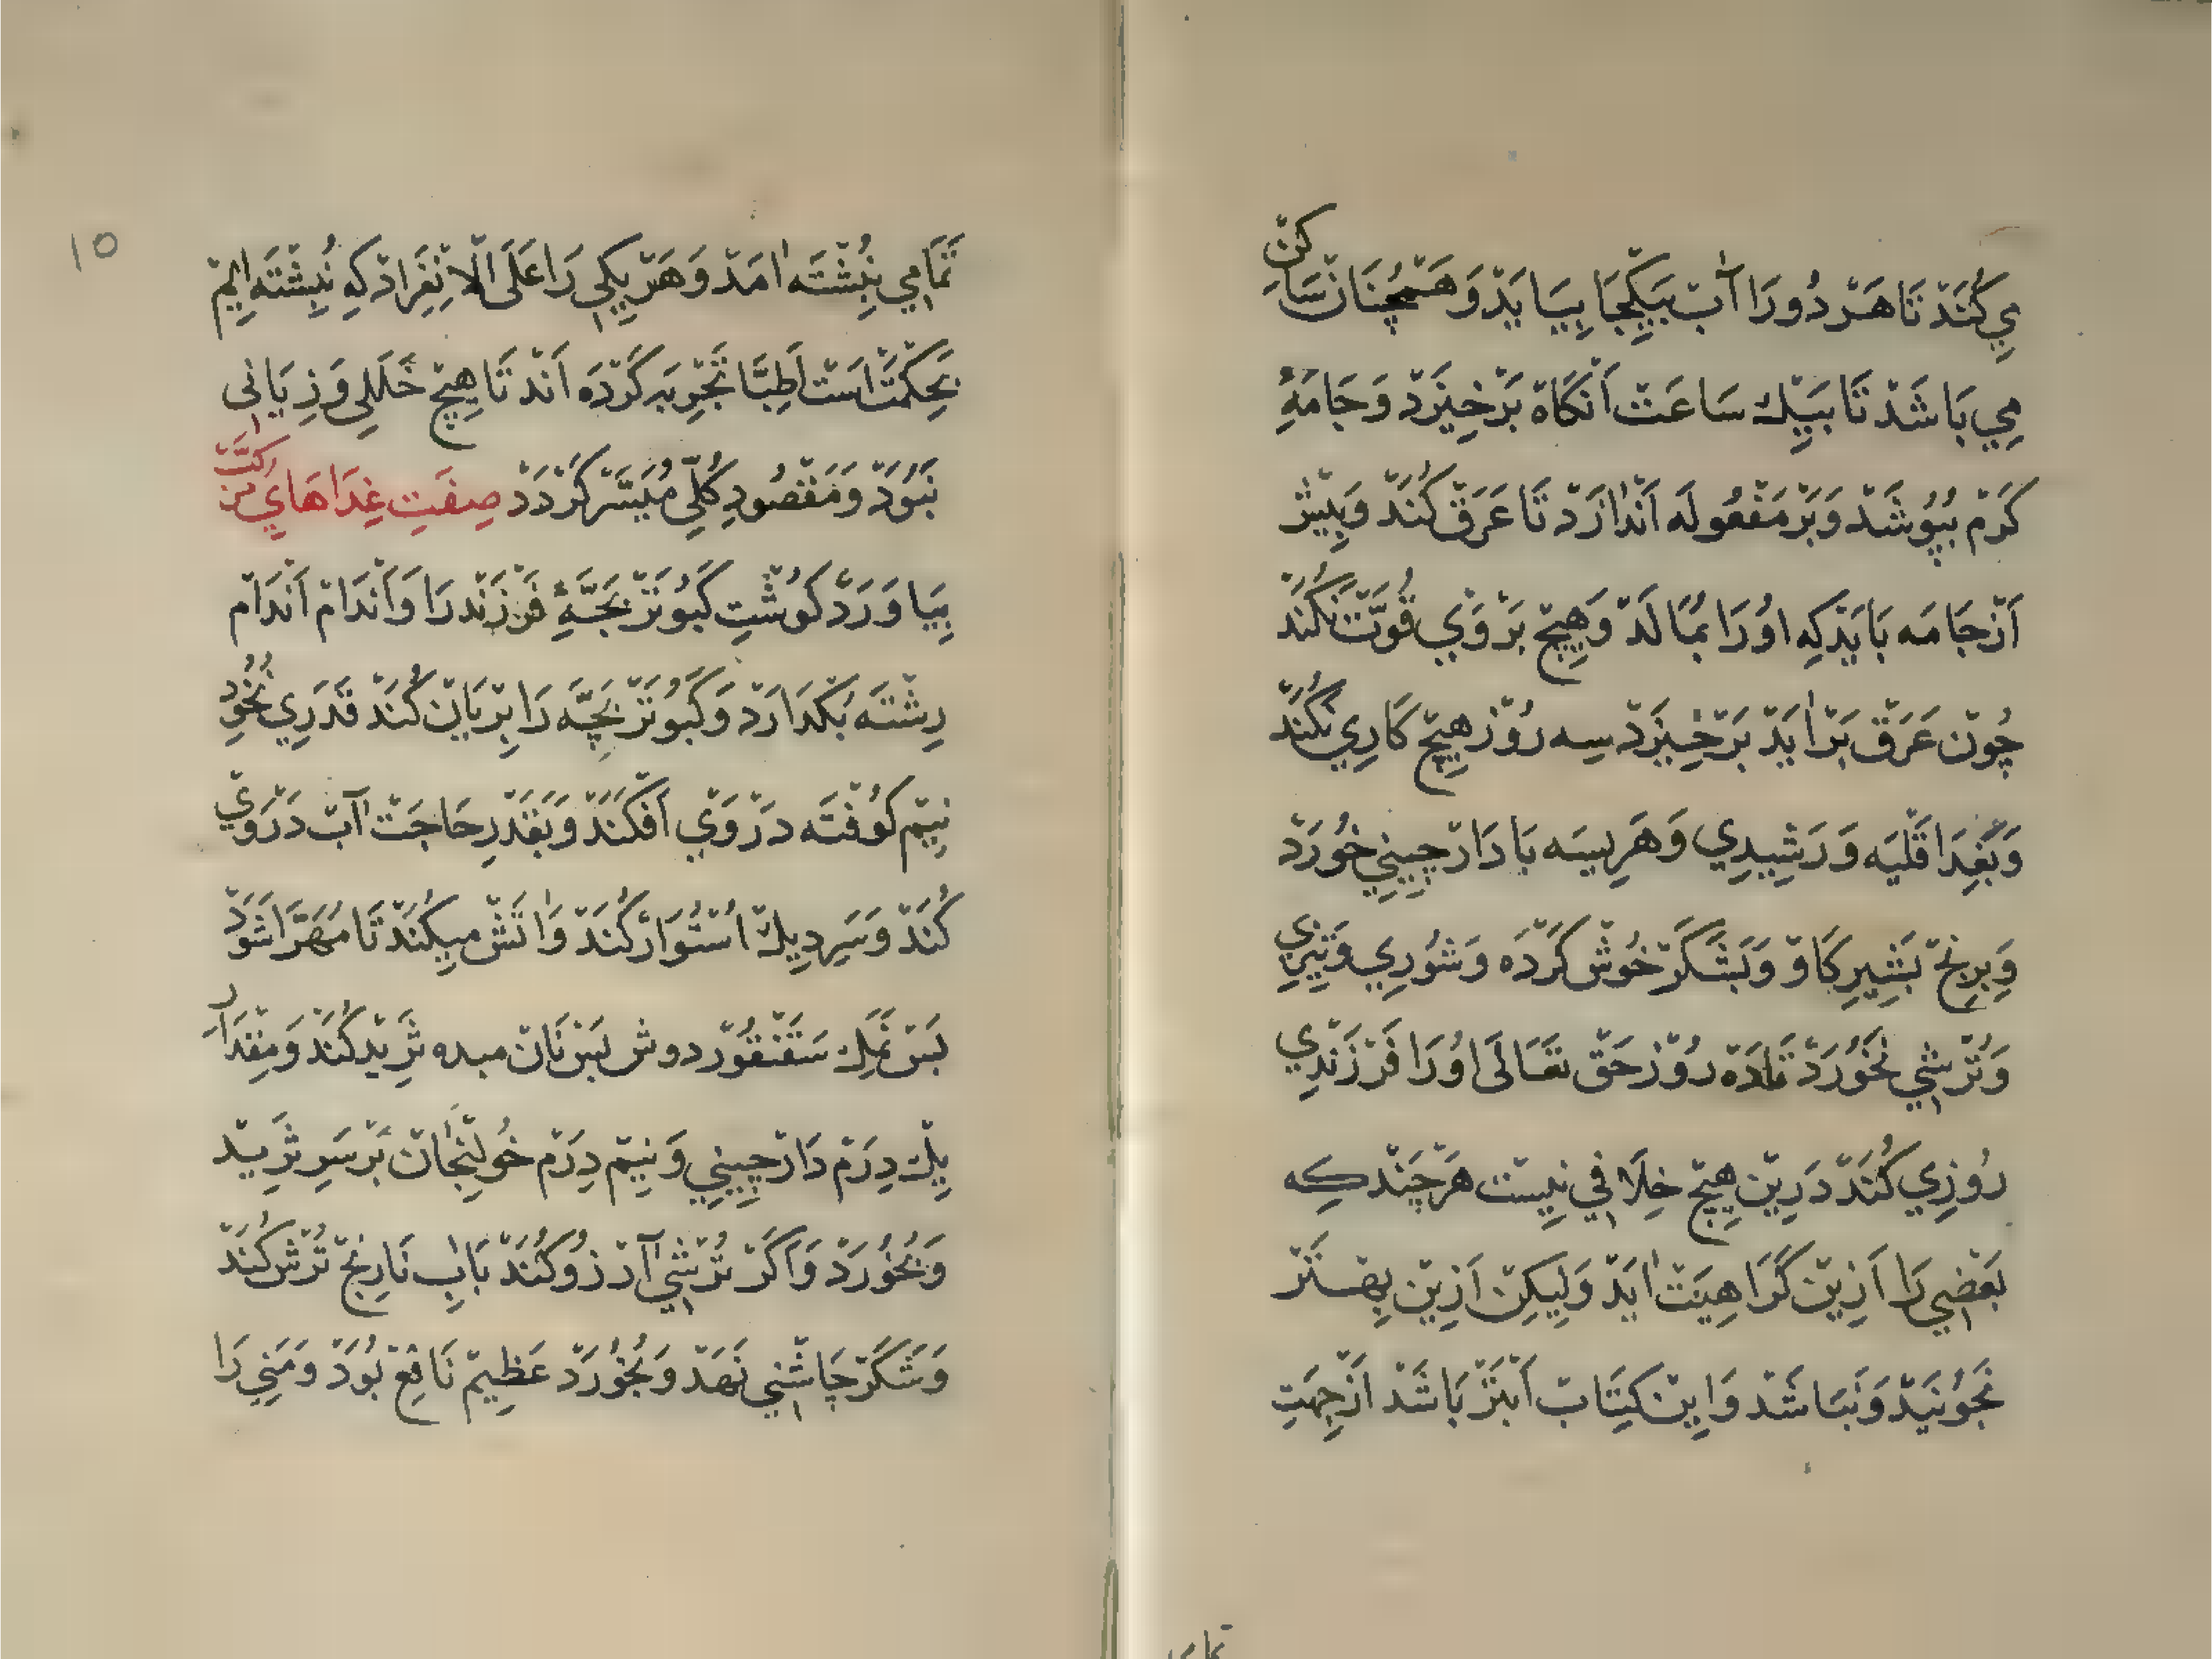 مِي كُنَدْ تَا هَرْ دُو رَا آبْ بَيِكْجَا بِيَايَدْ وَهَمْچُنَانْ سَاكِنْ
مِي بَاشَدْ تَا بِيَكْ سَاعَتْ اَنْكَاهْ بَرْخِيزَدْ وَجَامَهٔ
كَرْم بِپُوشَدْ وَبَرْ مَفْعُولَه اَنْدَازَدْ تَا عَرَقْ كُنَدْ وَبِيْش
اَزْ جَامَه بَايَدْ كِه اُو رَا بِمَالَدْ وَهِيچْ بَرْ وَيْ قُوَّتْ نَكُنَدْ
چُونْ عَرَقْ بَرْ اٰيَدْ بَرْخِيزَدْ سِه رُوْزْ هِيچْ كَارِي نَكُنَدْ
وَبَغِدَا قَلْيَه وَرَشِيدِي وَهَرِيسَه بَا دَارْچِينِي خُورَدْ
وَبِرِنْجْ بَشِيرِ كَاوْ وَبَشَكَرْ خُوشْ كَرْدَه وَشُورِي وَتِيزِي
وَتُرْشِي نَخُورَدْ تَا دَهْ رُوْزْ حَقْ تَعَالَى اُو رَا فَرْزَنْدِي
رُوزِي كُنَدْ دَرِينْ هِيچْ خِلَافِي نِيسْت هَرْچَنْد كِه
بَعْضِي رَا اَزِينْ كَرَاهِيَتْ اٰيَدْ وَلِيكِنْ اَزِينْ بِهْتَرْ
نَجُوْنِيَدْ وَنَبَاشَدْ وَاِينْ كِتَابْ اَبْتَرْ بَاشَدْ اَزْ جِهَتِ
تَمَامِي نِبِشْتَه اٰمَدْ وَهَرْ يِكِي رَا عَلَى الْاِنْفِرَادْ كِه نُبِشْتَه اِيمْ
بَحِكْمَتْ اسَتْ اَطِبَّا تَجْرِبَه كَرْدَه اَنْدْ تَا هِيچْ خَلَلِي وَزِيَانِي
نَبُوَدْ وَمَقْصُودِ كُلِّي مُيَسَّرْ كَرْدَدْ صِفَتِ غِدَاهَايِ مُرَكَّبْ
بِيَاوَرَدْ كُوشْتِ كَبُوتَرْ بَچَّهٔ فَرْزَنْد رَا وَاَنْدَامْ اَنْدَامْ
رِشْتَه بُكْدَارَدْ وَكَبُوتَرْ بَچَّه رَا بِرْيَانْ كُنَدْ قَدَرِي نُخُودِ
نِيمْ كُوفْتَه دَرْ وَيْ اَفْكَنَدْ وَبَقَدْرِ حَاجَتْ آبْ دَرْ وَيْ
كُنَدْ وَسَرِ دِيكْ اُسْتُوَارْ كُنَدْ وَاٰتَشْ مِيكُنَدْ تَا مُهَرَّا شَوَدْ
بَسْ نَمَكِ سَقَنْقُورْ دوش بَسْ نَانْ ميده ثَرِيدْ كُنَدْ وَمِقْدَارِ
يِكْ دِرَمْ دَارْچِينِي وَنِيمْ دِرَمْ خُولِنْجَانْ بَرْ سَرِ ثَرِيدْ
وَبُخُورَدْ وَاَكَرْ تُرْشِي آرْزُو كُنَدْ بَابِ نَارِنْجْ تُرْشْ كُنَدْ
وَشَكَرْ چَاشْنِي نَهَدْ وَبُخُورَدْ عَظِيمْ نَافِعْ بُوَدْ وَمَنِي رَا